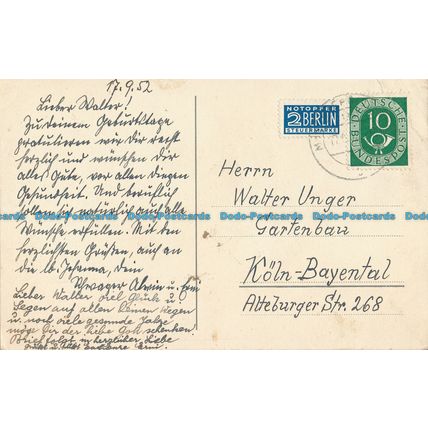 17.9.52
Lieber Walter!
Zu deinem Geburtstage
gratulieren wir dir recht
herzlich und wünschen dir
alles Gute, vor allen Dingen
Gesundheit. Und beruflich
sich natürlich auch alle
Wünsche erfüllen. Mit den
herzlichsten Grüßen, auch an
die lb. Johanna, dein
Schwager Alwin u.
Lieber Walter viel Glück u.
Segen auf allen Deinen Wegen
u. noch viele gesunde Jahre
möge Dir der liebe Gott schenken.
Brief folgt, in herzlicher Liebe
NOTOPFER
2 BERLIN
STEUERMARKE
DEUTSCHE BUNDESPOST
10
Herrn
Walter Unger
Gartenbau
Köln-Bayental
Alteburger Str. 268
Dodo-Postcards Dodo-Postcards Dodo-Postcards Dodo-Postcards Dodo-Postcards